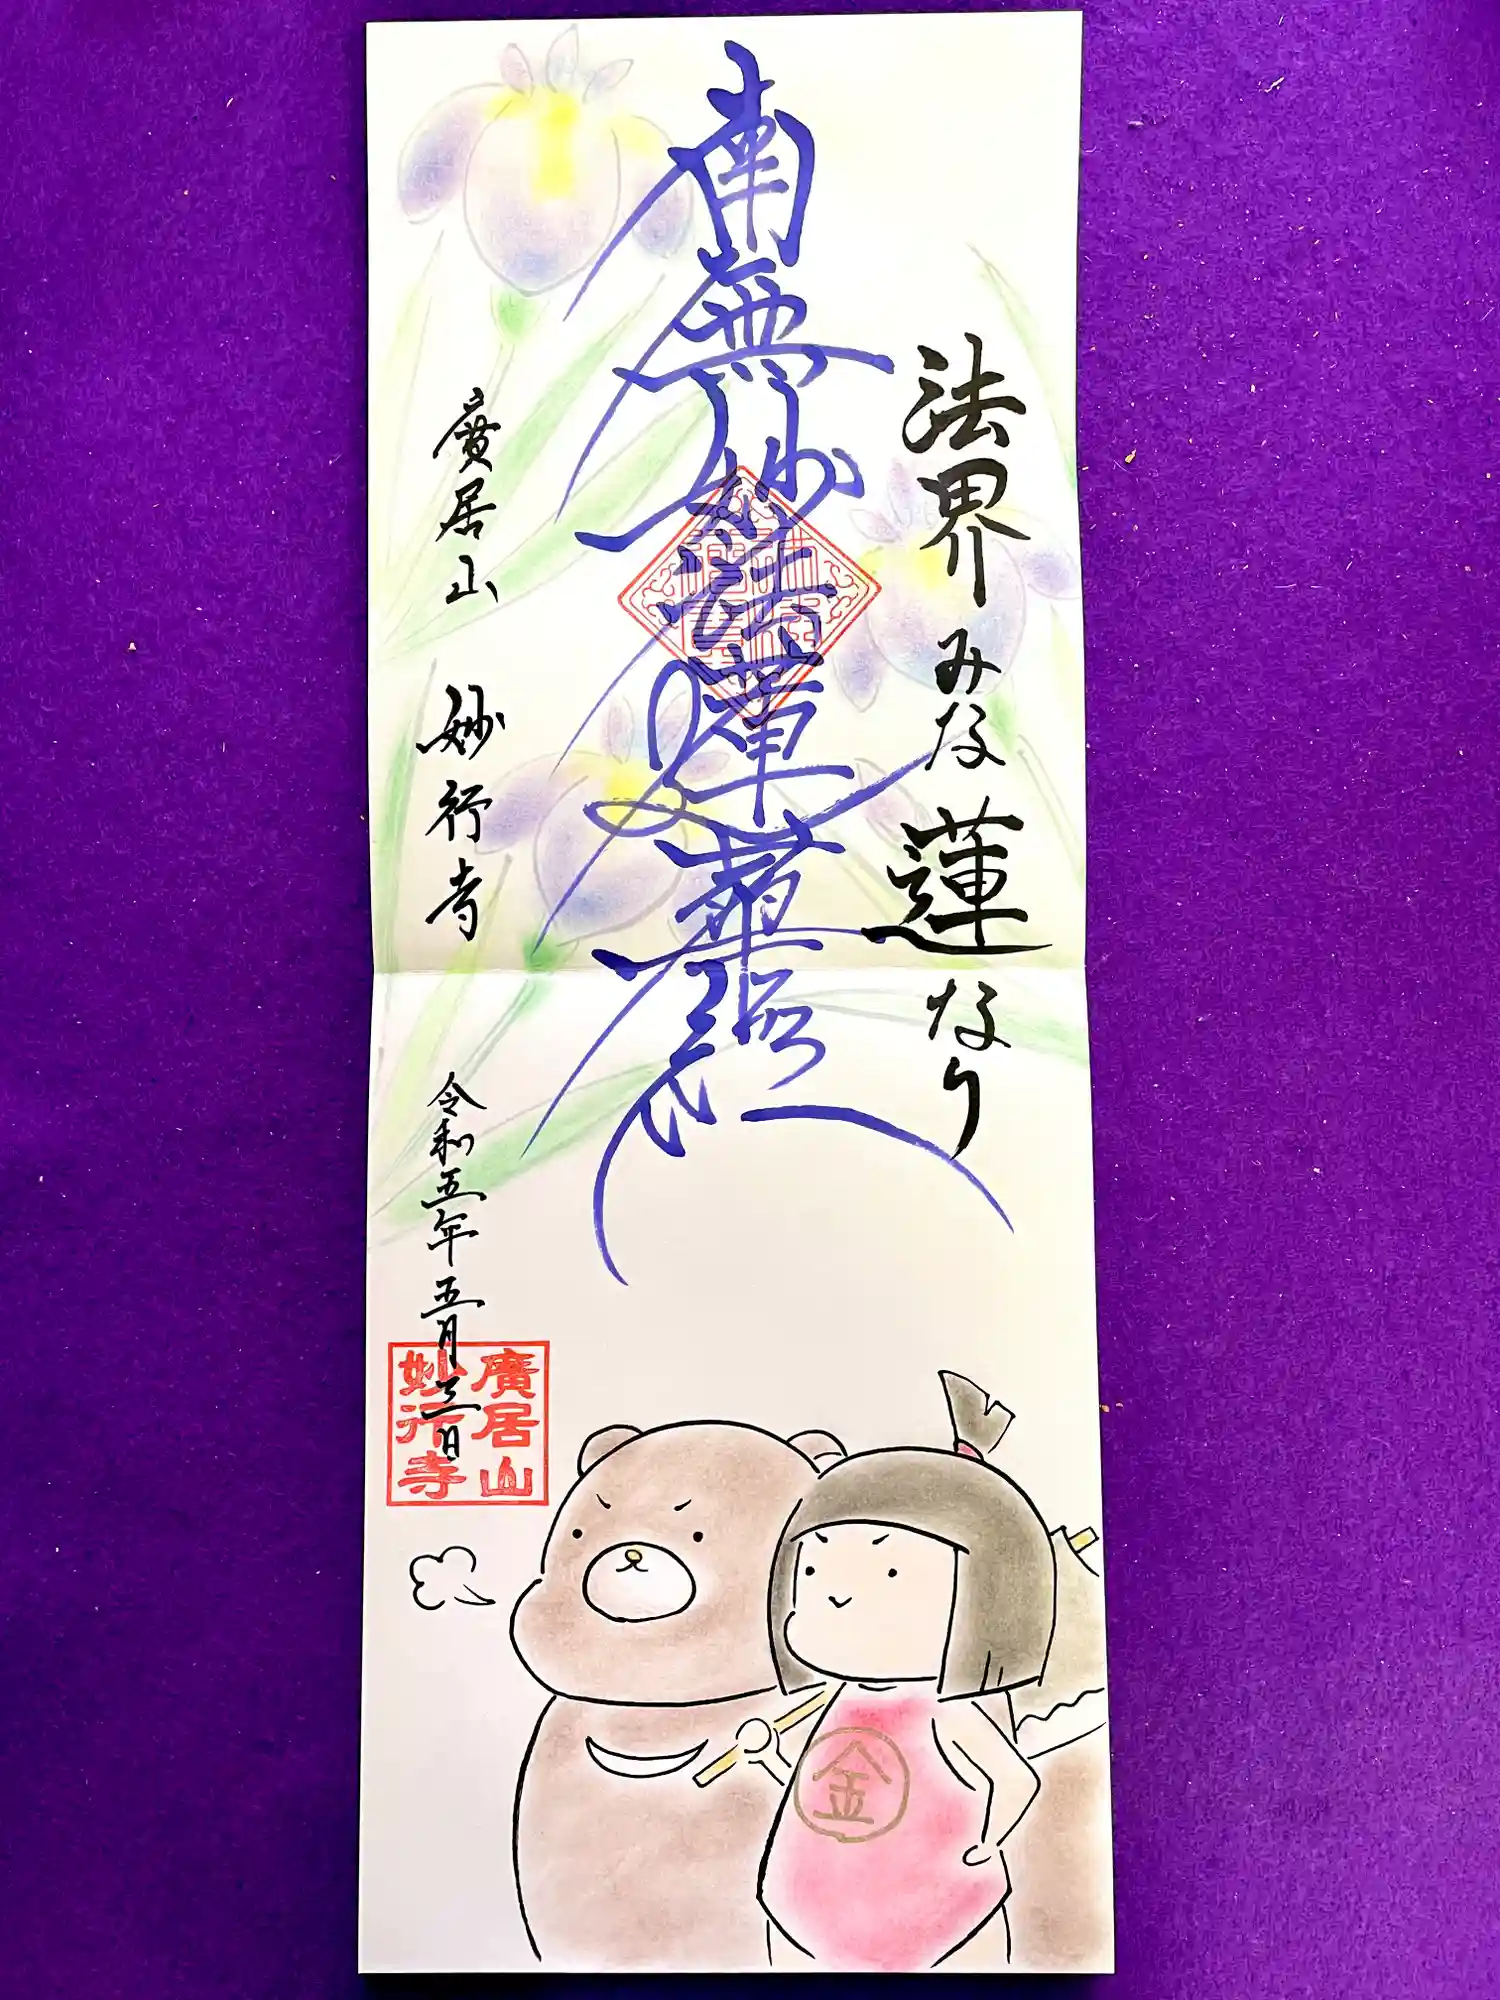 法界みな蓮なり
南無妙法蓮華経
廣居山 妙行寺
令和五年五月三日
廣居山
妙行寺
金